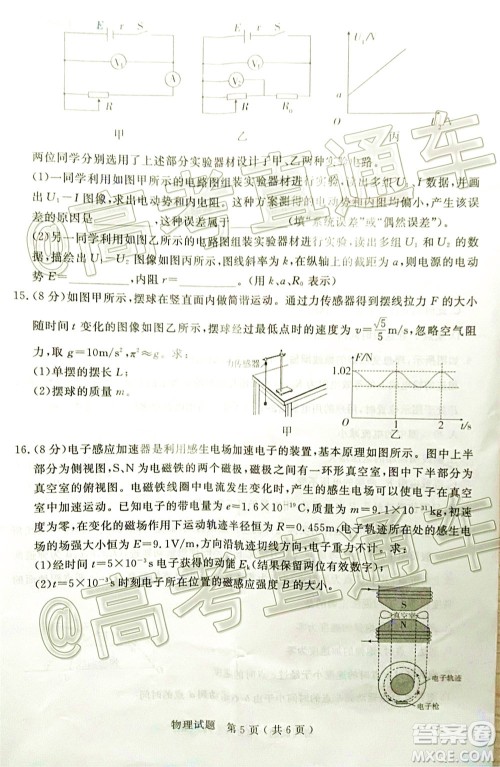 E r S
V₁
A
R
甲
E r S
V₁
V₂
R R₀
乙
U₁/V
a
O
丙
两位同学分别选用了上述部分实验器材设计了甲、乙两种实验电路。
(1)一同学利用如图甲所示的电路图组装实验器材进行实验,读出多组U₁、I数据,
并画出U₁—I图像,求出电动势和内电阻。这种方案测得的电动势和内阻均偏小,产生该误
差的原因是________,这种误差属于________(填“系统误差”或“偶然误差”)。
(2)另一同学利用如图乙所示的电路图组装实验器材进行实验,读出多组U₁和U₂的数
据,描绘出U₁—U₂图像如图丙所示,图线斜率为k,在纵轴上的截距为a,则电源的电动
势E=________,内阻r=________。(用k、a、R₀表示)
15.(8分)如图甲所示,摆球在竖直面内做简谐运动。通过力传感器得到摆线拉力F的大小
随时间t变化的图像如图乙所示,摆球经过最低点时的速度大小v=√5/5 m/s,忽略空气阻
力,取g=10m/s²,π²≈g,求:
(1)单摆的摆长L;
(2)摆球的质量m。
力传感器
甲
F/N
1.02
O 1 2 t/s
乙
16.(8分)电子感应加速器是利用感生电场加速电子的装置,基本原理如图所示。图中上部分
为侧视图,S、N为电磁铁的两个磁极,磁极之间有一环形真空室,图中下半部分为
真空室的俯视图。电磁铁线圈中电流发生变化时,产生的感生电场可以使电子在真空
室中加速运动。已知电子的电荷量为e=1.6×10⁻¹⁹C,质量为m=9.1×10⁻³¹kg,初速度为零,
在变化的磁场作用下运动轨迹半径恒为R=0.455m,电子轨迹所在处的感生电
场的场强大小恒为E=9.1V/m,方向沿轨迹切线方向,求:
(1)经时间t=5×10⁻³s电子获得的动能Eₖ(结果保留两位有效数字);
(2)t=5×10⁻³s时刻电子所在位置的磁感应强度B的大小。
S
真空室
N
电子轨迹
电子枪
物理试题 第5页(共6页)
@高考直通车
作业帮
MXQE.COM